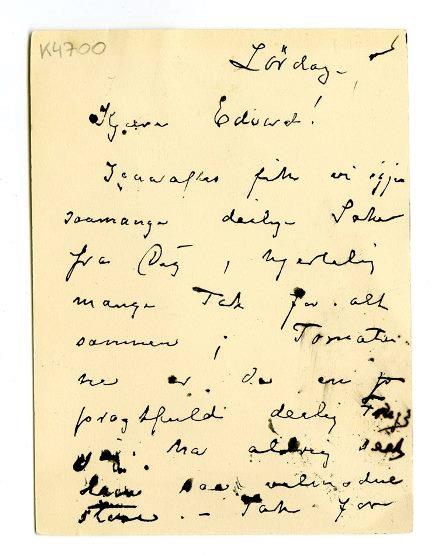 K4700
Lördag
Kjære Edvard!
Igaaraftes fik vi igjen
saamange deilige Saker
fra Dig, hjertelig
mange Tak for alt
sammen; Tomater
ne er da en
pragtfuld deilig Frugt
ha aldrig seet
saa velmodne
store. – Tak for